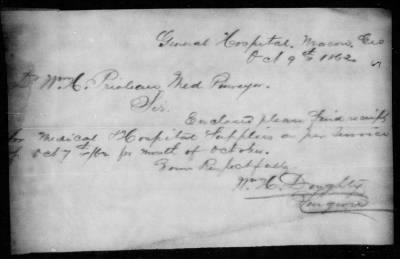 General Hospital, Macon, Geo
Oct 9th 1862
Dr Wm H. Prioleau, Med Purveyor.
Sir.
Enclosed please find receipts
for Medical & Hospital Supplies as per Invoice
of Oct 7th /62 for month of October.
Yours Respectfully
Wm. H. Doughty
Surgeon